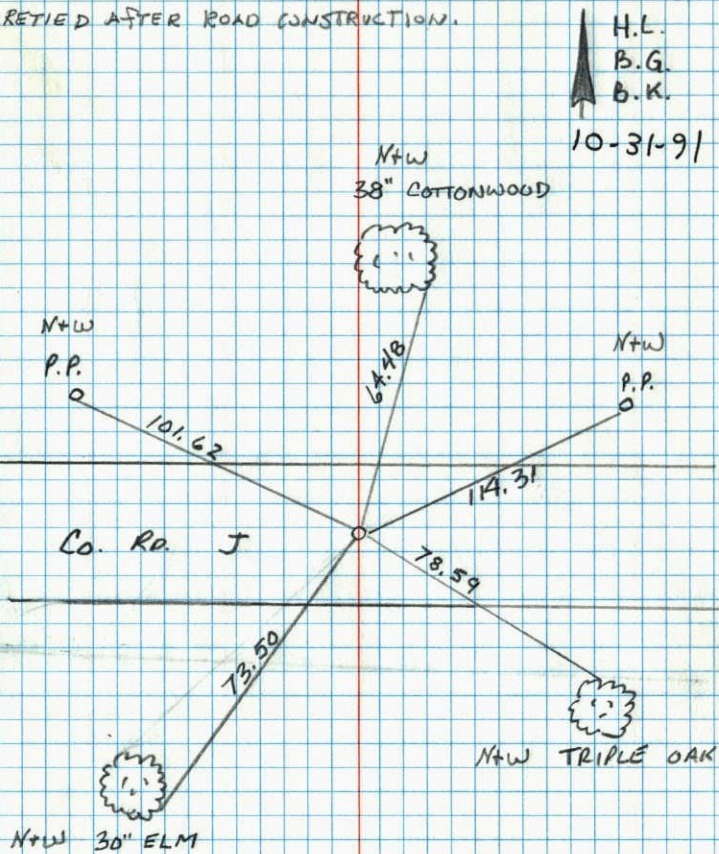 RETIED AFTER ROAD CONSTRUCTION.
H.L.
B.G.
B.K.
10-31-91
N+W
38" COTTONWOOD
N+W
P.P.
N+W
P.P.
64.48
101.62
114.31
CO. RD. J
78.59
73.50
N+W TRIPLE OAK
N+W 30" ELM